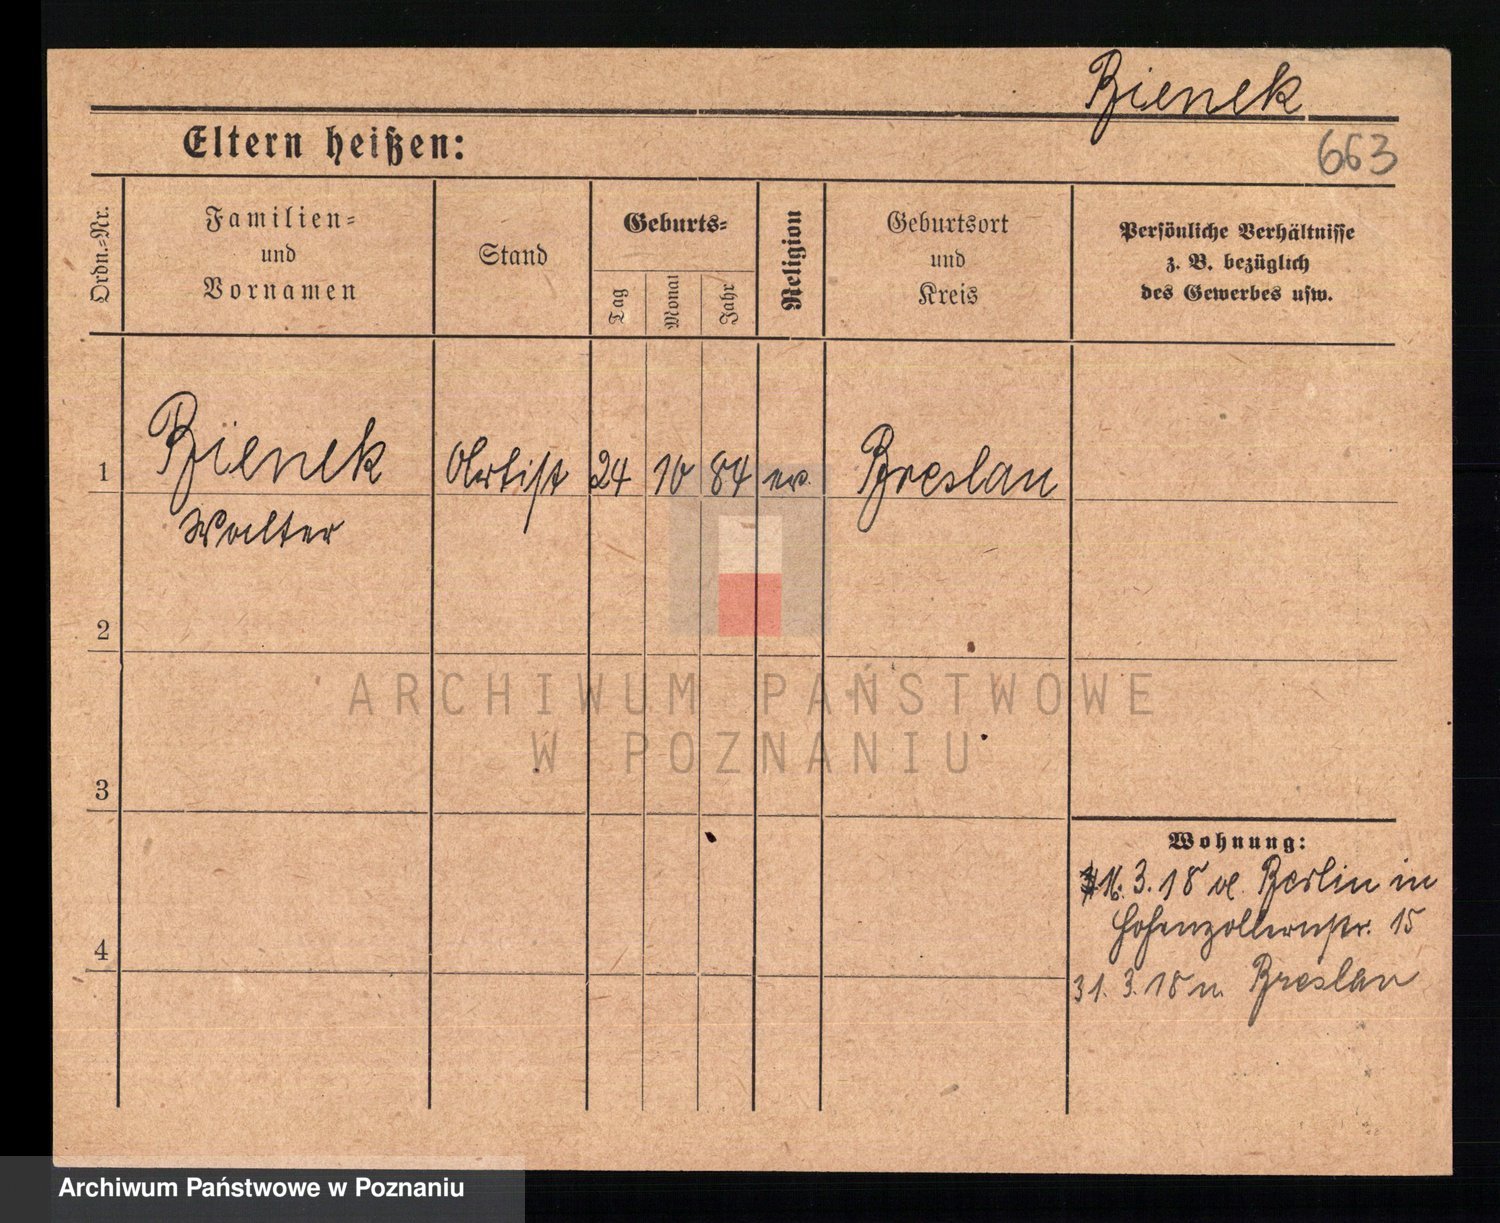 Bienek
663
Eltern heißen:
Ordn.-Nr.
Familien-
und
Vornamen
Stand
Geburts-
Tag
Monat
Jahr
Religion
Geburtsort
und
Kreis
Persönliche Verhältnisse
z. B. bezüglich
des Gewerbes usw.
1 Bienek Artist 24 10 84 ev. Breslau
Walter
2
3
4
ARCHIWUM PAŃSTWOWE
W POZNANIU
Wohnung:
16. 3. 18 v. Berlin in
Hohenzollernstr. 15
31. 3. 18 n. Breslau
Archiwum Państwowe w Poznaniu